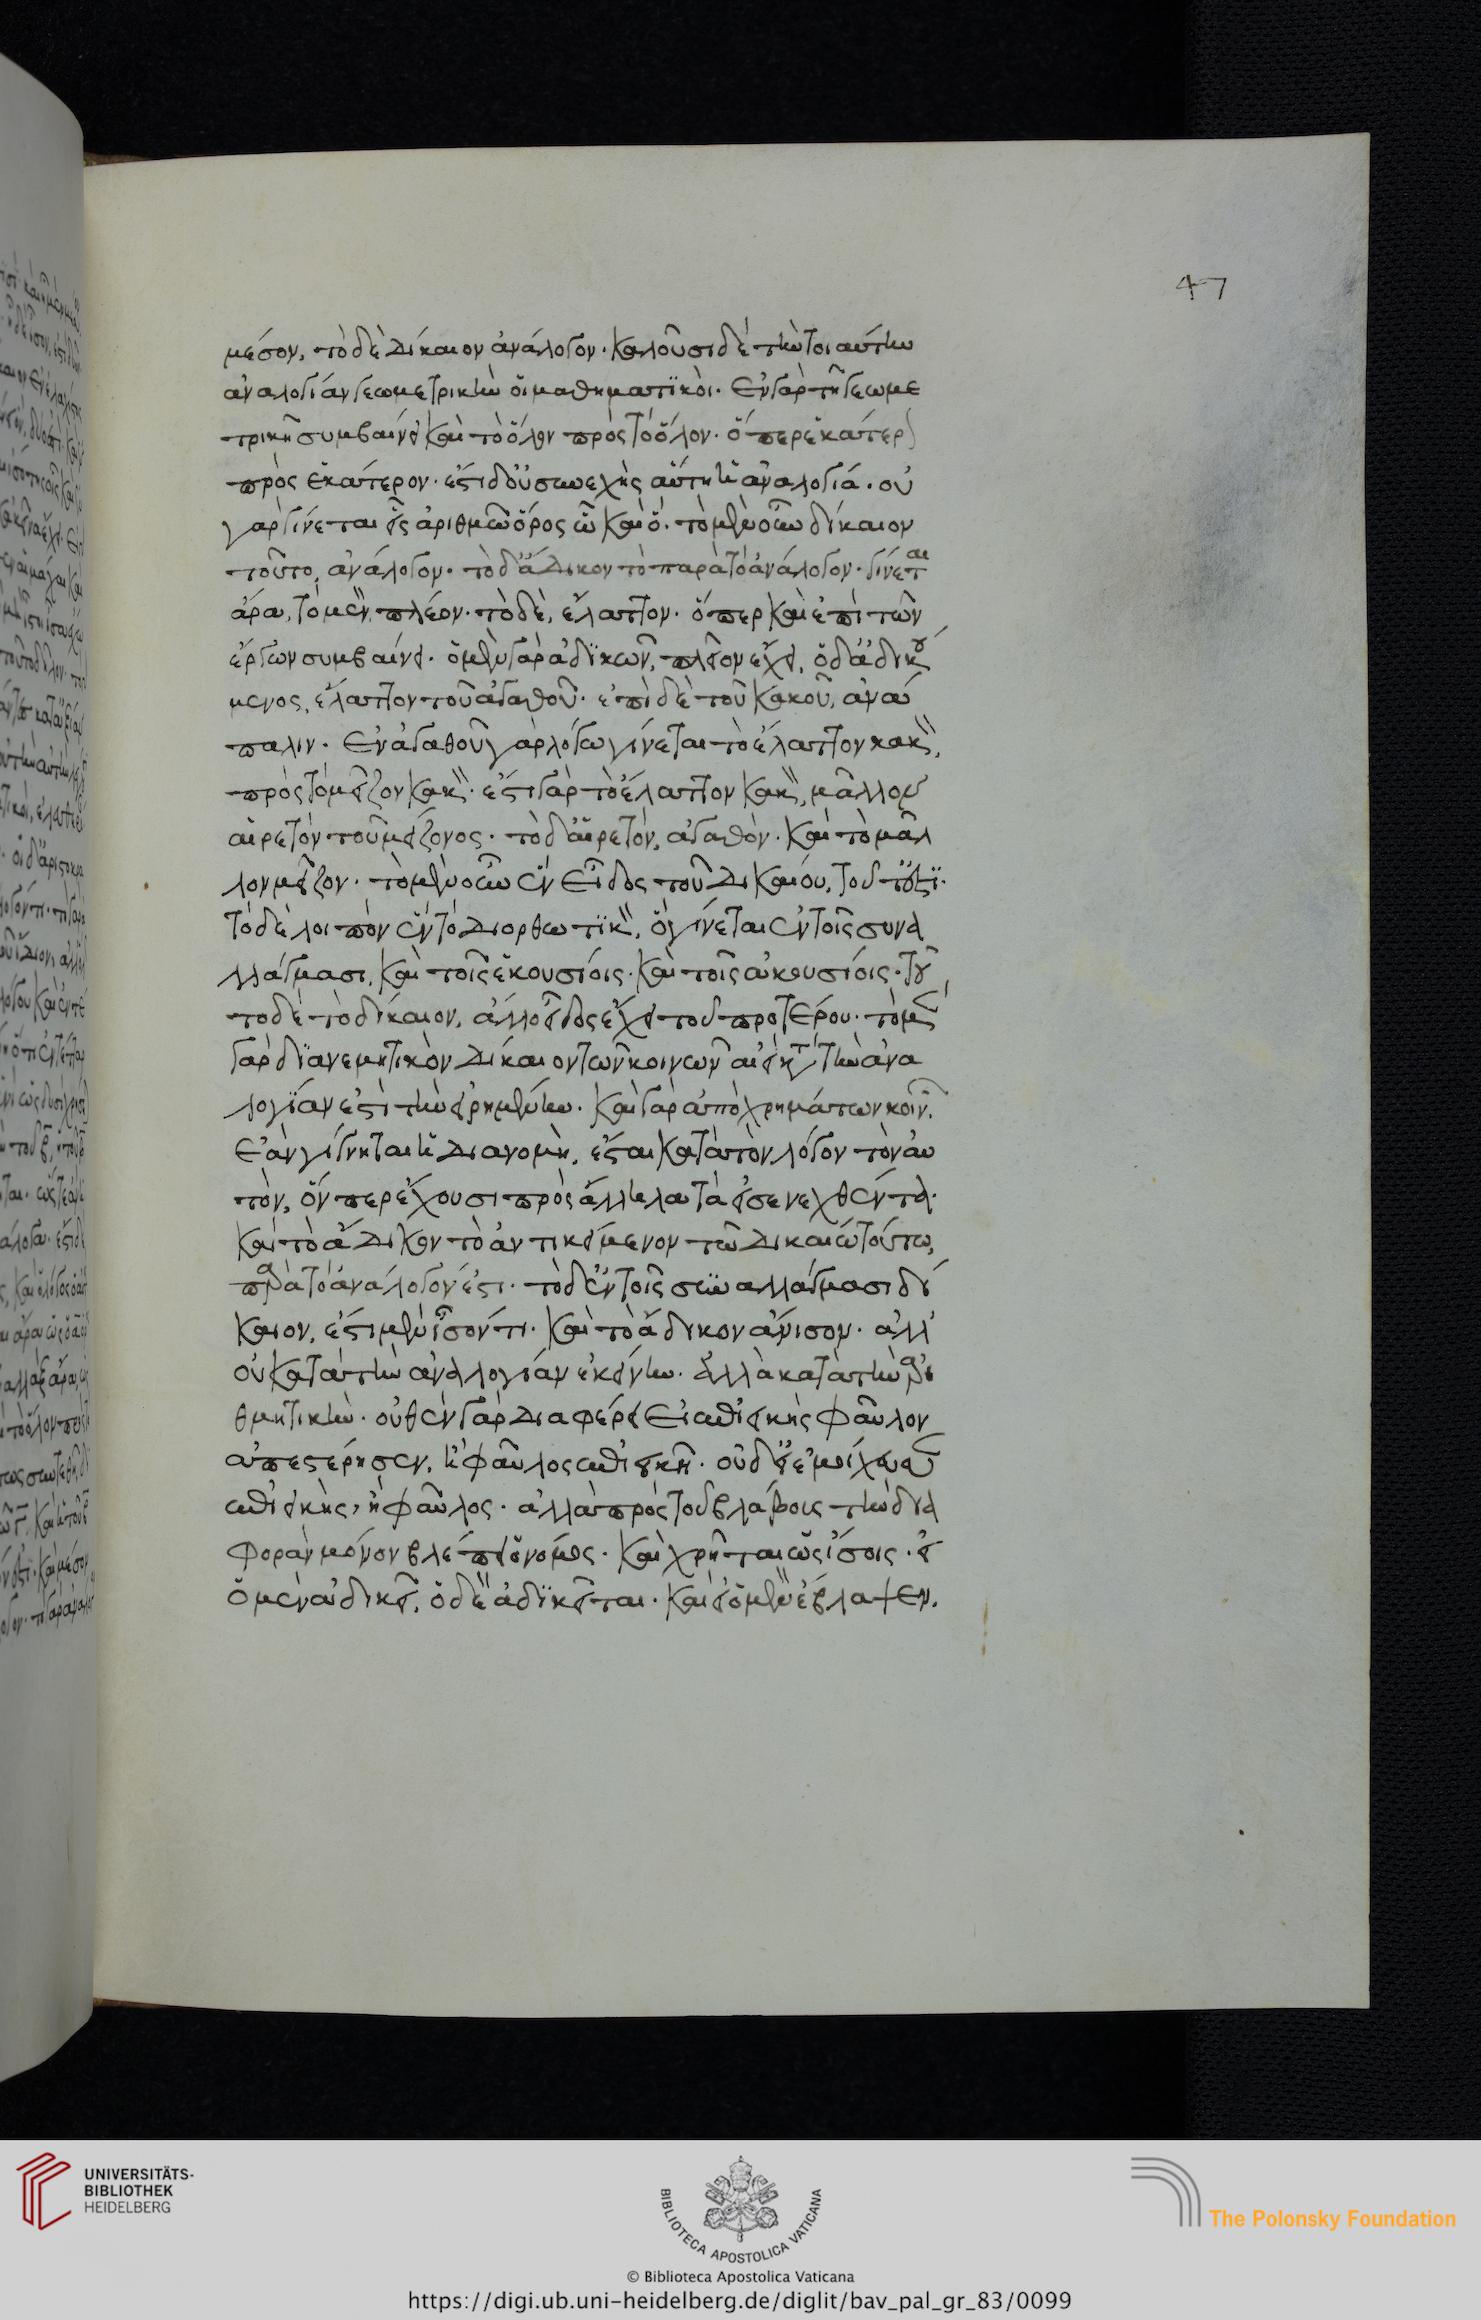 47
μέσον, τὸ δὲ δίκαιον ἀνάλογον· καλοῦσι δὲ τὴν τοιαύτην
ἀναλογίαν γεωμετρικὴν οἱ μαθηματικοὶ· ἐν γὰρ τῇ γεωμε
τρικῇ συμβαίνει καὶ τὸ ὅλον πρὸς τὸ ὅλον· ὅπερ ἑκάτερ
πρὸς ἑκάτερον· ἔστι δ' οὐ συνεχὴς αὕτη ἡ ἀναλογία· οὐ
γὰρ γίνεται εἷς ἀριθμῶ ὅρος ᾧ καὶ ὅ· τὸ μὲν οὖν δίκαιον
τοῦτο, ἀνάλογον· τὸ δ' ἄδικον τὸ παρὰ τὸ ἀνάλογον· γίνεται
ἄρα, τὸ μὲν πλέον· τὸ δὲ, ἔλαττον· ὅπερ καὶ ἐπὶ τῶν
ἔργων συμβαίνει· ὁ μὲν γὰρ ἀδικῶν, πλέον ἔχει, ὁ δ' ἀδικού
μενος, ἔλαττον τοῦ ἀγαθοῦ· ἐπὶ δὲ τοῦ κακοῦ, ἀνά
παλιν· ἐν ἀγαθοῦ γὰρ λόγω γίνεται τὸ ἔλαττον κακὸν,
πρὸς τὸ μεῖζον κακὸν· ἔστι γὰρ τὸ ἔλαττον κακὸν, μᾶλλον
αἱρετὸν τοῦ μείζονος· τὸ δ' αἱρετὸν, ἀγαθὸν· καὶ τὸ μᾶλ
λον μεῖζον· τὸ μὲν οὖν ἓν εἶδος τοῦ δικαίου, τοῦτ' ἐστί·
τὸ δὲ λοιπὸν ἓν τὸ διορθωτικὸν, ὃ γίνεται ἐν τοῖς συνα
λλάγμασι, καὶ τοῖς ἑκουσίοις· καὶ τοῖς ἀκουσίοις· τοῦ
το δὲ τὸ δίκαιον, ἄλλο εἶδος ἔχει τοῦ προτέρου· τὸ μὲν
γὰρ διανεμητικὸν δίκαιον τῶν κοινῶν ἀεὶ κατὰ τὴν ἀνα
λογίαν ἐστὶ τὴν εἰρημένην· καὶ γὰρ ἀπὸ χρημάτων κοινῶν
ἐὰν γίγνηται ἡ διανομὴ, ἔσται κατὰ τὸν λόγον τὸν αὐ
τὸν, ὅνπερ ἔχουσι πρὸς ἄλληλα τὰ εἰσενεχθέντα·
καὶ τὸ ἄδικον τὸ ἀντικείμενον τῶ δικαίω τούτω,
παρὰ τὸ ἀνάλογόν ἐστι· τὸ δ' ἐν τοῖς συναλλάγμασι δί
καιον, ἐστὶ μὲν ἴσόν τι· καὶ τὸ ἄδικον ἄνισον· ἀλλ'
οὐ κατὰ τὴν ἀναλογίαν ἐκείνην· ἀλλὰ κατὰ τὴν ἀρι
θμητικὴν· οὐθὲν γὰρ διαφέρει εἰ ἐπιεικὴς φαῦλον
ἀπεστέρησεν, ἢ φαῦλος ἐπιεικῆ· οὐδ' εἰ ἐμοίχευσεν
ἐπιεικὴς, ἢ φαῦλος· ἀλλὰ πρὸς τοῦ βλάβους τὴν δια
φορὰν μόνον βλέπει ὁ νόμος· καὶ χρῆται ὡς ἴσοις· εἰ
ὁ μὲν ἀδικεῖ, ὁ δὲ ἀδικεῖται· καὶ εἰ ὁ μὲν ἔβλαψεν,
UNIVERSITÄTS-
BIBLIOTHEK
HEIDELBERG
BIBLIOTECA APOSTOLICA VATICANA
© Biblioteca Apostolica Vaticana
The Polonsky Foundation
https://digi.ub.uni-heidelberg.de/diglit/bav_pal_gr_83/0099